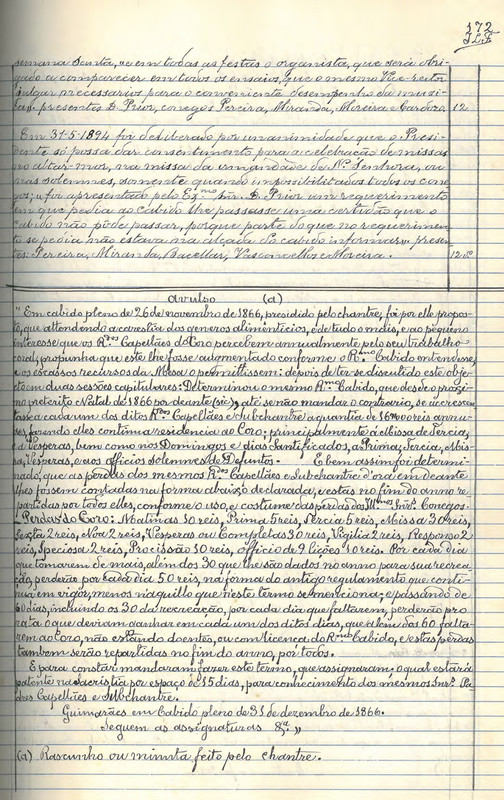 172
semana santa, e em todas as festas o organista, que será obri-
gado a comparecer em todos os ensaios, que o mesmo Vice-reitor
julgar necessarios para o conveniente desempenho da musi-
ca. presentes D. Prior, conegos Pereira, Miranda, Moreira e Cardozo. 12
Em 31-5-1894 foi deliberado por unanimidade que o Presi-
dente só possa dar consentimento para a celebração de missas
no altar-mor, na missa da irmandade de N.ª Senhora, ou
nas solemnes, somente quando impossibilitados todos os cone-
gos; e foi apresentado pelo Ex.mo Snr. D. Prior um requerimento
em que pedia ao cabido lhe passasse uma certidão que o
cabido não póde passar, porque parte do que no requerimen-
to se pedia não estava na alçada do cabido informar. presen-
tes: Pereira, Miranda, Bacellar, Vasconcellos e Moreira. 12
avulso (a)
"Em cabido pleno de 26 de novembro de 1866, presidido pelo chantre, foi por elle propos-
to, que attendendo a carestia dos generos alimenticios, e de tudo o mais, e ao pequeno
interesse que os R.dos Capellães do Coro percebem annualmente pelo seu trabalho
coral, propunha que este lhe fosse augmentado conforme o R.mo Cabido entendesse,
e os escassos recursos da Mesa o permittissem: depois de ter-se discutido este obje-
cto em duas sessões capitulares: Determinou o mesmo R.mo Cabido, que desde o proxi-
mo preterito Natal de 1866 por deante (sic), até se não mandar o contrario, se accrescen-
tasse a cada um dos ditos R.dos Capellães e Subchantre a quantia de reis annu-
aes, fazendo elles continua residencia ao Coro; principalmente á Missa de Tercia,
e Vesperas, bem como nos Domingos e dias Santificados, a Prima, Tercia, Mis-
sa, Vesperas, e aos officios solemnes de Defuntos. - E bem assim foi determi-
nado, que as perdas dos mesmos R.dos Capellães e Subchantre d'ora em deante
lhes fossem contadas na forma abaixo declarada; e estas no fim do anno re-
partidas por todos elles, conforme o uso, e costume das perdas dos Snrs. Conegos.
- Perdas do Coro: Matinas 50 reis, Prima 5 reis, Tercia 5 reis, Missa 30 reis,
Sexta 2 reis, Noa 2 reis, Vesperas ou Completas 30 reis, Vigilia 2 reis, Responso 2
reis, Speciosa 2 reis, Procissão 10 reis, officio de 9 lições 10 reis. Por cada dia
que tomarem de mais, alem dos 30 que lhe são dados no anno para sua recrea-
ção, perderão por cada dia 50 reis, na fórma do antigo regulamento que conti-
nua em vigor, menos naquillo que n'este termo se menciona; e passando de
60 dias, incluindo os 30 da recreação, por cada dia que faltarem, perderão pro
rata o que deviam ganhar em cada um dos ditos dias, que alem dos 60 falta-
rem ao Coro, não estando doentes, ou com licença do R.mo Cabido, e estas perdas
tambem serão repartidas no fim do anno, por todos.
E para constar mandaram fazer este termo, que assignaram; o qual estará
patente na sacristia por espaço de 15 dias, para conhecimento dos mesmos Snrs. Pa-
dres Capellães e Subchantre.
Guimarães em Cabido pleno de 31 de dezembro de 1866.
Seguem as assignaturas &.ª "
(a) Rascunho ou minuta feito pelo chantre.